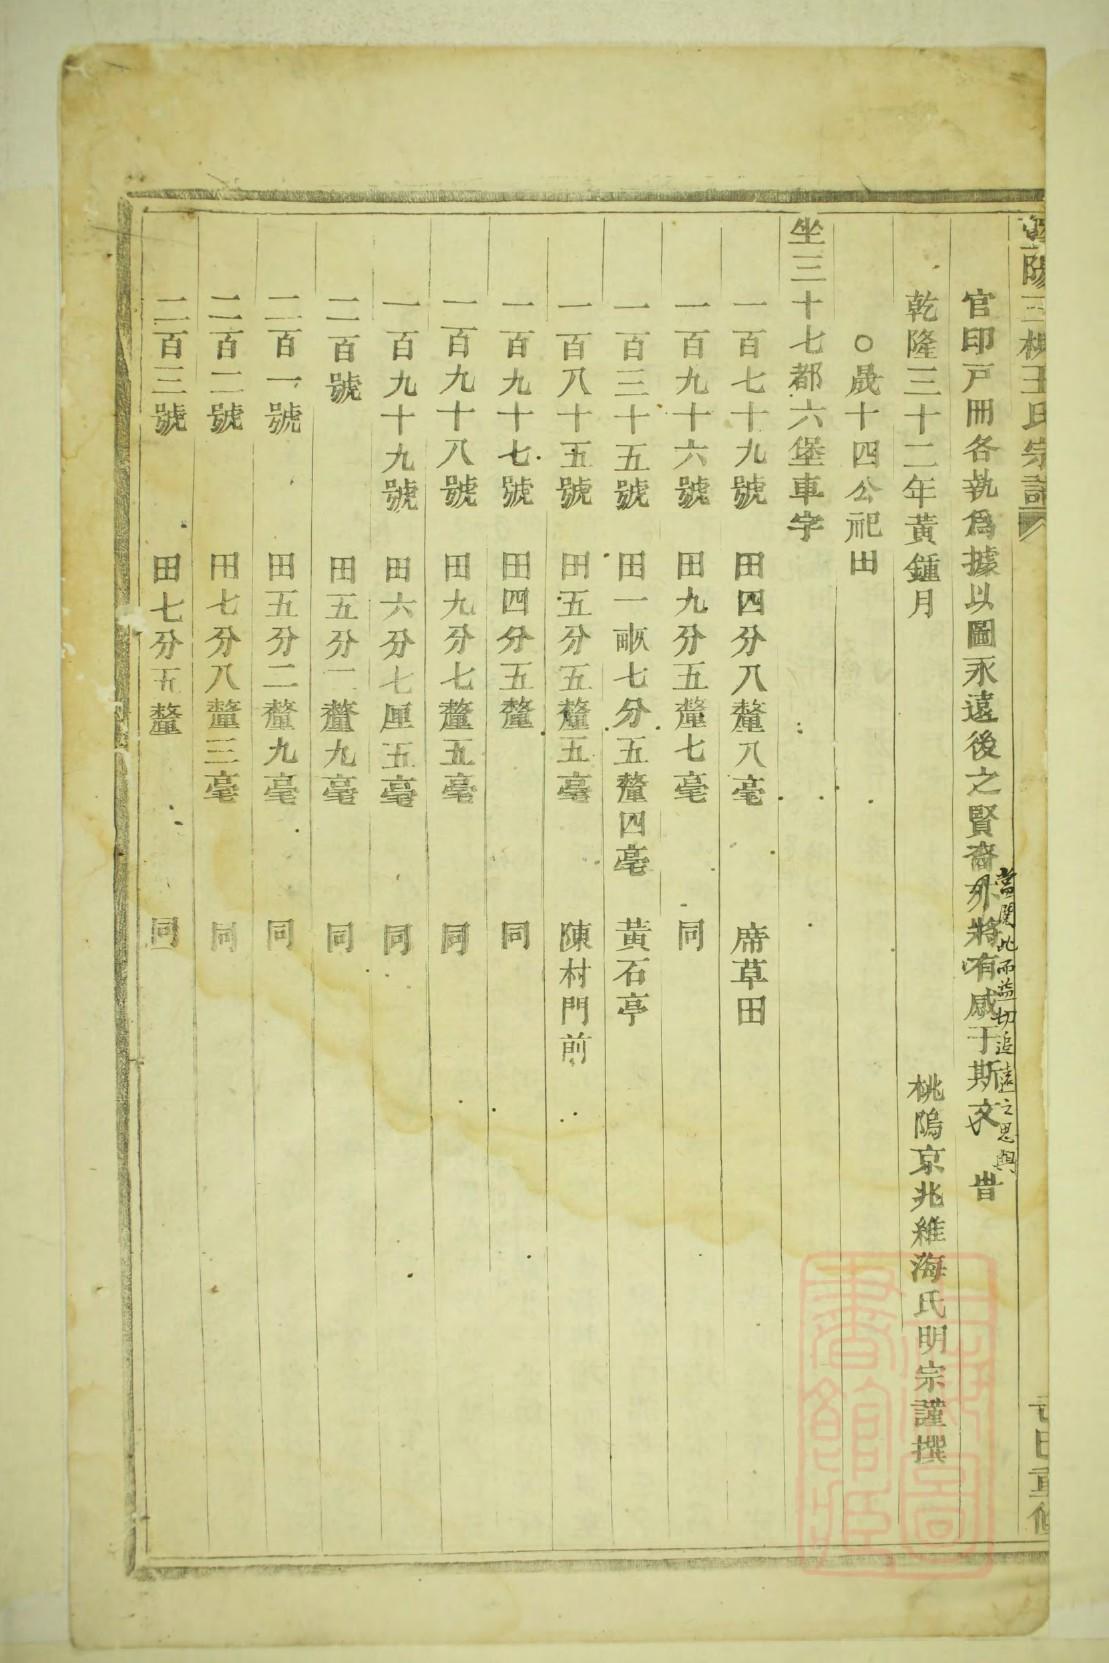 王氏宗譜
官印戸冊各執為據以圖永遠後之賢裔外將有感于斯文 旹
當閱此而益切追遠之思與
乾隆三十二年黃鍾月 桃隖京兆維海氏明宗謹撰
○晟十四公祀田
坐三十七都六堡車字
一百七十九號 田四分八釐八毫 席草田
一百九十六號 田九分五釐七毫 同
一百三十五號 田一畝七分五釐四毫 黃石亭
一百八十五號 田五分五釐五毫 陳村門前
一百九十七號 田四分五釐 同
一百九十八號 田九分七釐五毫 同
一百九十九號 田六分七厘五毫 同
二百號 田五分二釐九毫 同
二百一號 田五分二釐九毫 同
二百二號 田七分八釐三毫 同
二百三號 田七分五釐 同
上海圖書館藏